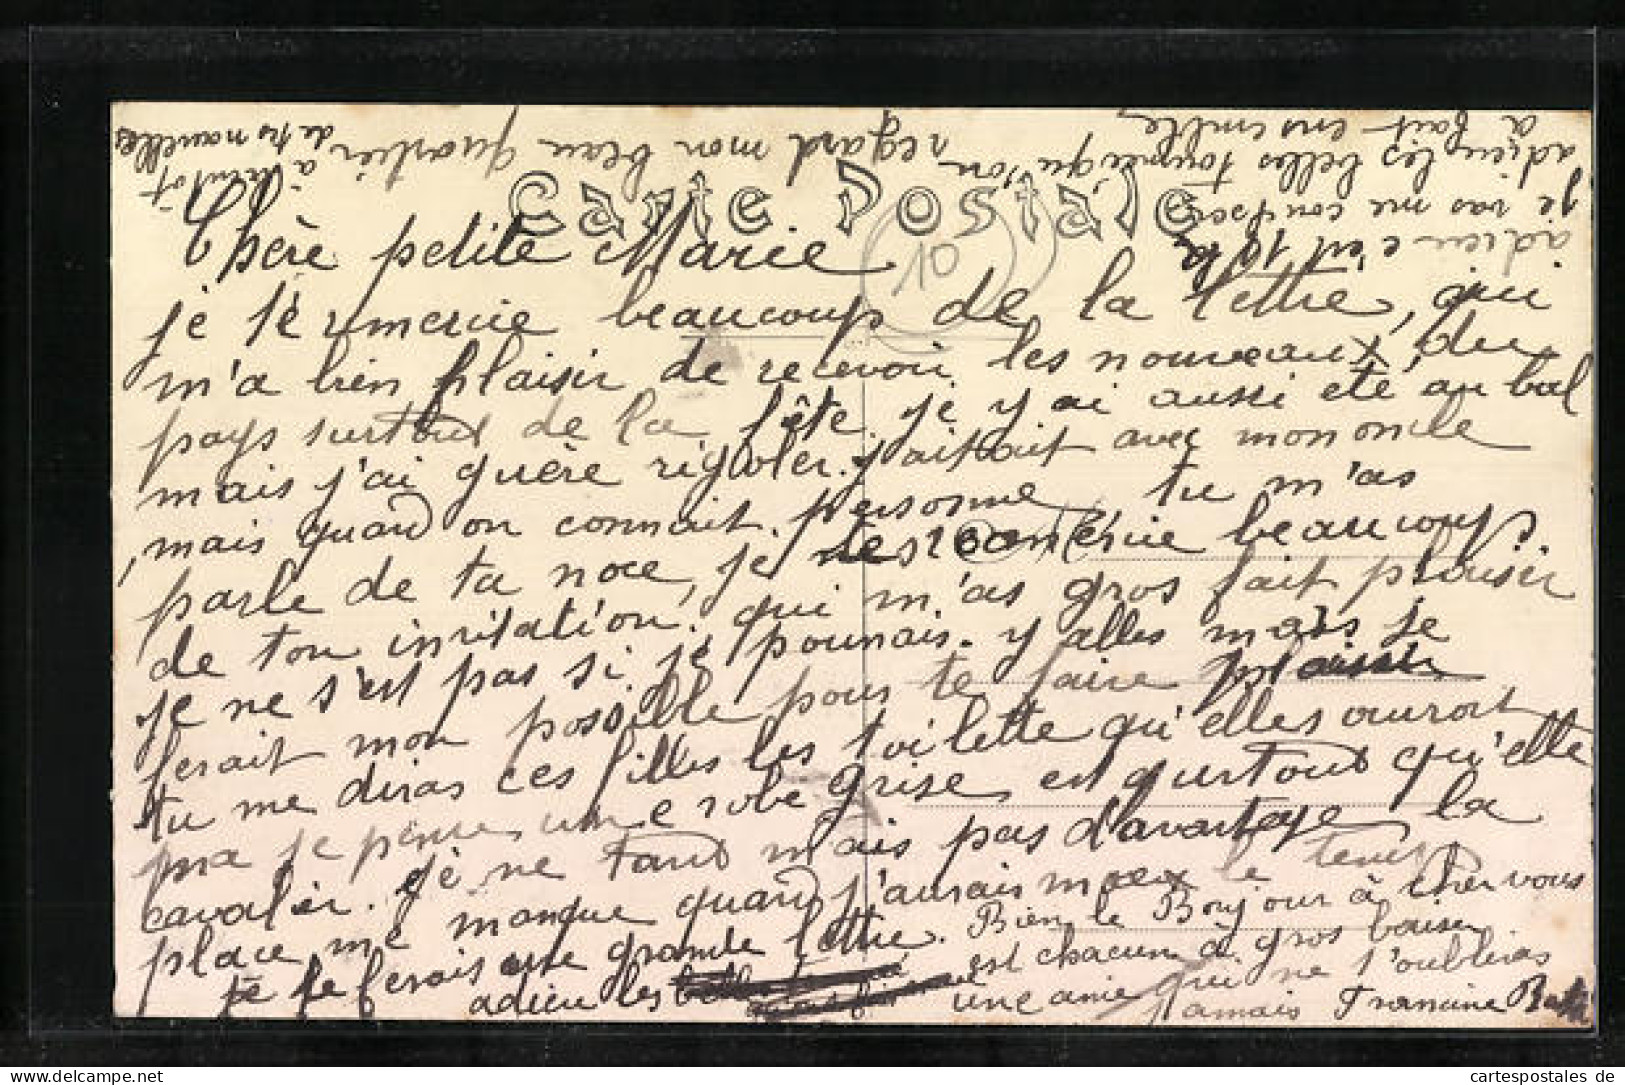 Carte Postale
10
Chère petite Marie
je te remercie beaucoup de la lettre, qui
m'a bien plaisir de recevoir les nouveaux, du
pays surtout de la fête. je y ai aussi eté au bal
mais j'ai guère rigoler. j'aitait avec mon oncle
, mais quand on connait personne, tu m'as
parle de ta noce, je remercie beaucoup
de ton invitation. qui m'as gros fait plaisir
je ne s'est pas si je pouvais. y alles mais je
ferait mon possible pour te faire plaisir
tu me diras ces filles les toilette qu'elles auront
ma je pense une robe grise est surtout qu'elle
cavalier. je ne tard mais pas d'avantage la
place me manque quand j'aurais moex le temps
je te ferais une grande lettre. Bien le Bonjour à cher vous
adieu les est chacun à gros baiser
une amie qui ne t'oublieras
jamais Francine
adieu c'est 10h
je vas me coucher
adieu les belles tournées qu'on
à fait ensemble
regard mon beau quartier
à bientôt
de tes nouvelles
Postales
cartespostales de